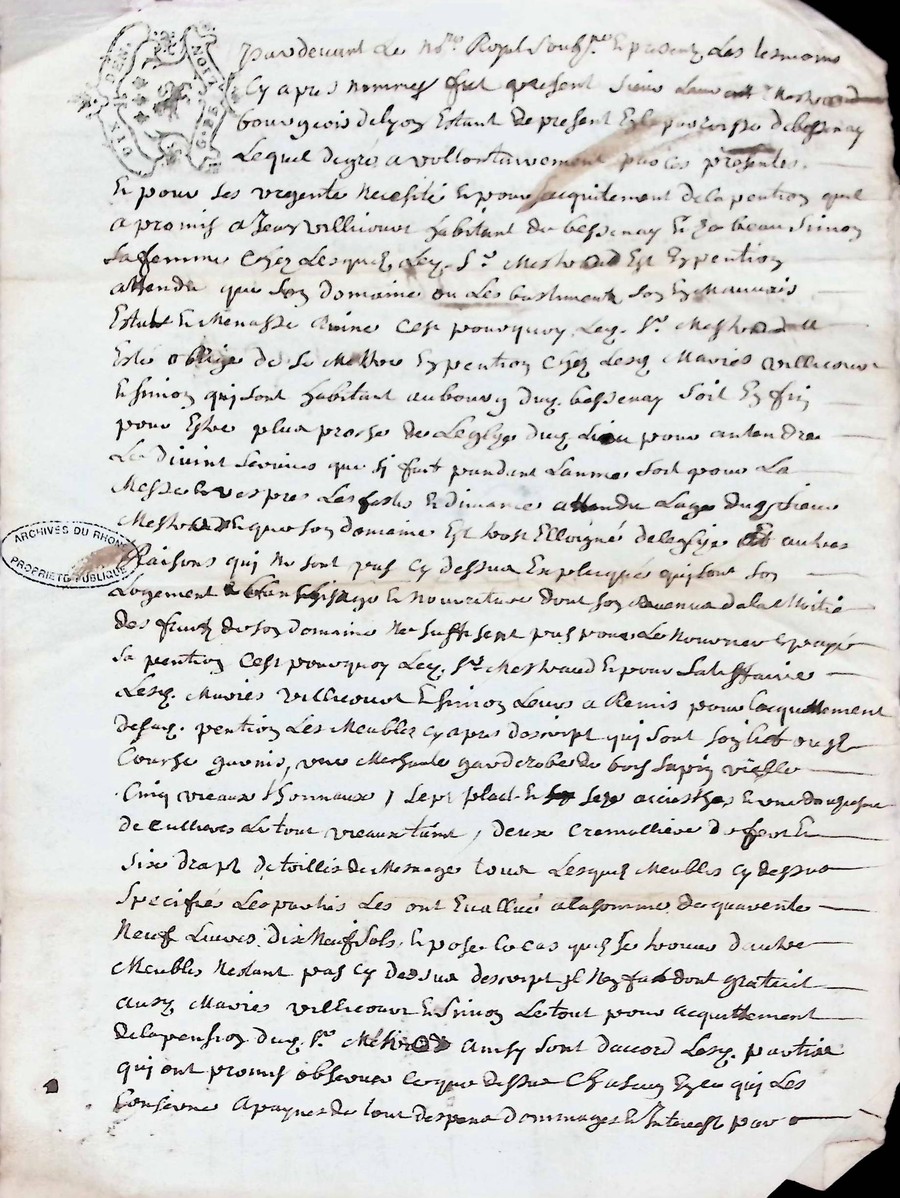 GEN. DE LYON NOT.
Pardevant Le No.re Royal Soubs.ne Et presents Les tesmoins
Cy apres nommes fut present Sieur
bourgeois de lyon Estant de present En la parroisse de bessenay
Lequel de gré a vollontairement par ces presentes
Et pour ses urgente Necesité Et pour acquitement de la pention quil
a promis a Jean villicourt habitant du bessenay Et Izabeau Simon
Sa femme Chez Lesquels Led. Sr. Est En pention
attendu que Son domaine ou Les bastiments son En Mauvais
Estat Et Menasse Ruine Cest pourquoy Led. Sr. a
Esté oblige de Se Mettre En pention Chez Lesd. Maries villicourt
Et Simon qui sont habitant au bourg dud. bessenay Soit En fin
pour Estre plus proche de Leglise dud. Lieu pour antendre
Le Divint Service que Si fait pandant Lannee Soit pour La
Messe Et vespres Les festes Et dimances attendu Lage dud. Sieur
Et que Son domaine Est Elloigné de leglise Et autres
Raisons qui Ne sont pas Cy dessus Explicqué qui sont Son
Logement blanchisage Et Nourriture dont Son Revenu de la Moitié
des fruits de Son domaine Ne Suffisent pas pour Le Nourrir Et payé
Sa pention Cest pourquoy Led. Sr. Et pour Satisffaire
Lesd. Maries villicourt Et Simon Leurs a Remis pour Lacquittement
de sad. pention Les Meubles Cy apres descript qui sont Son lict
garnis, une Meschante garderobe de bois Sapin vieille
Cinq vieaux, Sept plact Et Sept assiettes Et une dougeine
de Cullieres Le tout vieaux, deux Cremalliere de fert Et
Six drapt de toilles de Mesnages tous Lesquels Meubles Cy dessus
Specifiés Les parties Les ont Evallué a la somme de quarente
Neuf Livres dix Neuf Sols, Et pose Le cas quil Se trouve dautre
Meubles Nestant pas Cy dessus descript il Nen fait dont gratuit
ausd. Maries villicourt Et Simon Le tout pour acquittement
de la pension dud. Sr. ainsy sont daccord Lesd. partie
qui ont promis observer Ce que dessus Chascun En ce qui Les
Conserne a paynes de tout despens dommages Et Interest par
ARCHIVES DU RHONE
PROPRIETE PUBLIQUE